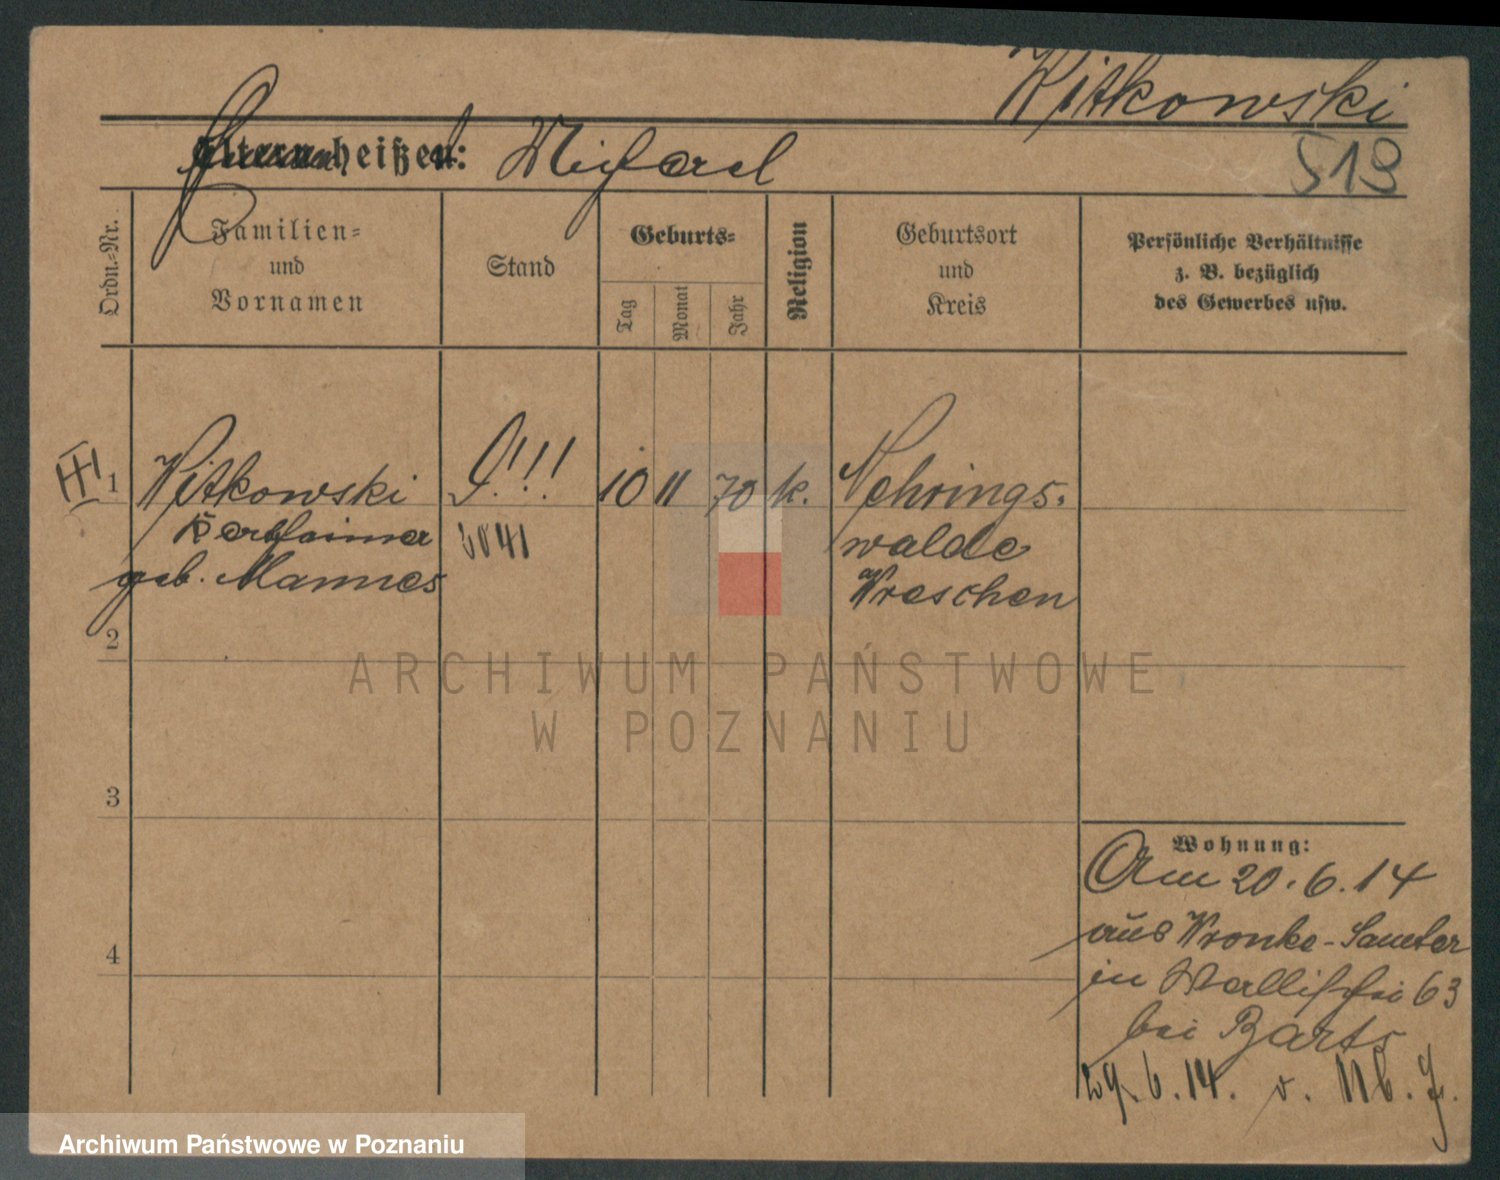 Witkowski
519
heißen: Michael
Ordn.-Nr.
Familien-
und
Vornamen
Stand
Geburts-
Tag
Monat
Jahr
Religion
Geburtsort
und
Kreis
Persönliche Verhältnisse
z. B. bezüglich
des Gewerbes usw.
III
1 Witkowski !!! 10 11 70 k. Nehrings-
walde
geb. Mannes Wreschen
2
3
4
Wohnung:
Am 20.6.14
aus Wronke-Samter
in Wallischei 63
bei Barts
29.6.14. v.
ARCHIWUM PAŃSTWOWE
W POZNANIU
Archiwum Państwowe w Poznaniu